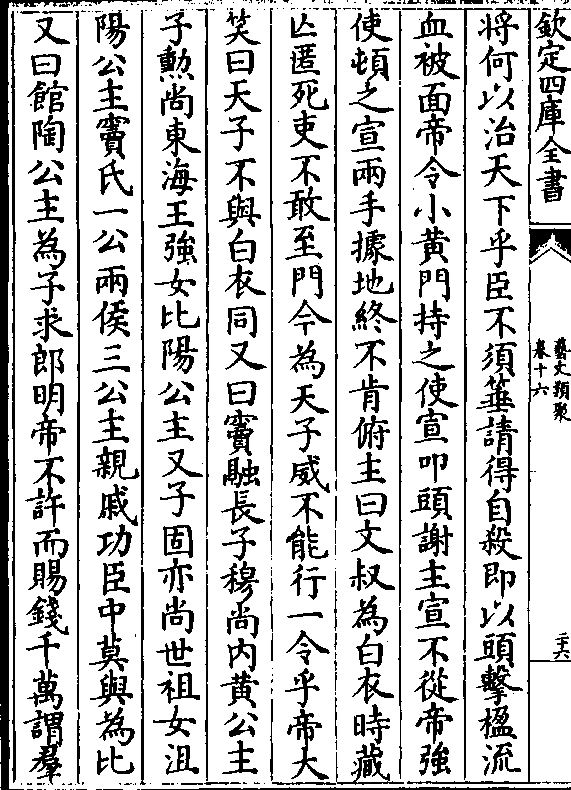 欽定四庫全書
藝文類聚
卷十六
二十六
将何以治天下乎臣不須箠請得自殺即以頭擊楹流
血被面帝令小黄門持之使宣叩頭謝主宣不從帝強
使頓之宣兩手據地終不肯俯主曰文叔為白衣時藏
亡匿死吏不敢至門今為天子威不能行一令乎帝大
笑曰天子不與白衣同又曰竇融長子穆尚内黄公主
子勲尚東海王強女比陽公主又子固亦尚世祖女沮
陽公主竇氏一公兩侯三公主親戚功臣中莫與為比
又曰館陶公主為子求郎明帝不許而賜錢千萬謂羣